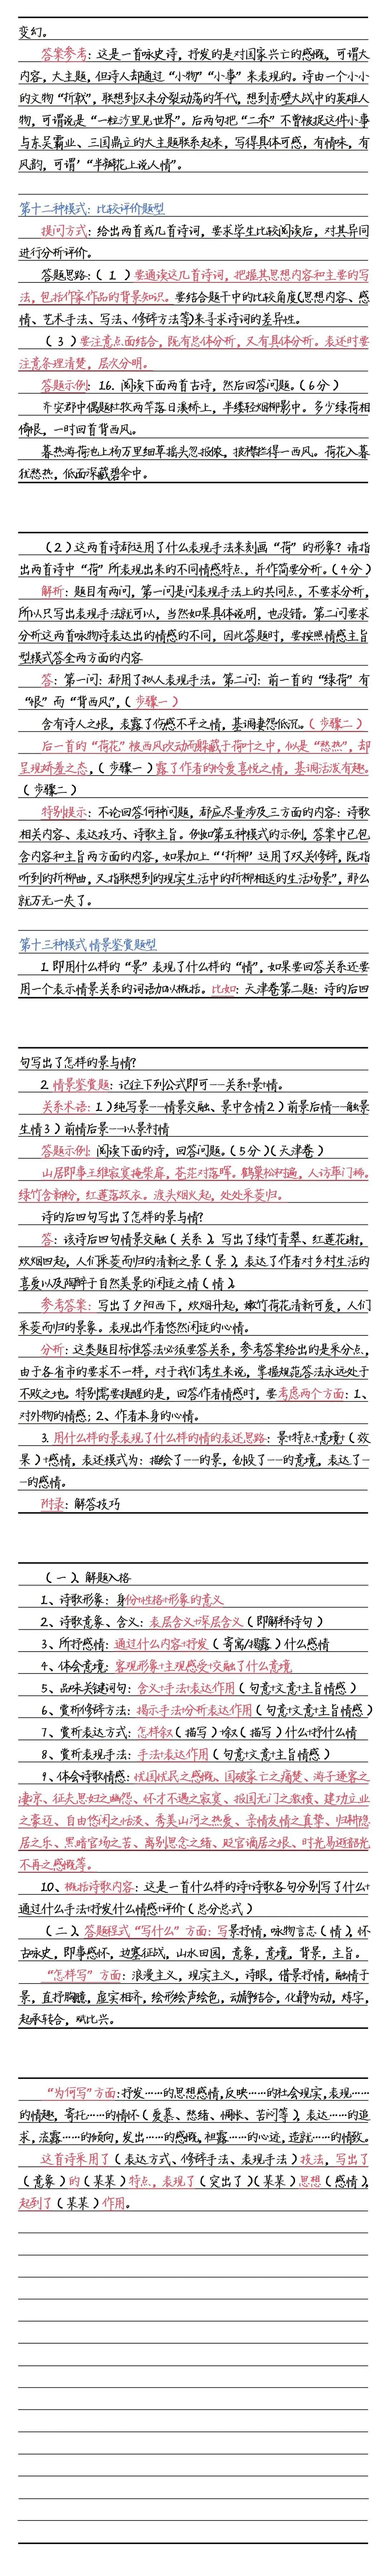 变幻。
答案参考：这是一首咏史诗，抒发的是对国家兴亡的感慨，可谓大
内容，大主题，但诗人却通过“小物”“小事”来表现的。诗由一个小小
的文物“折戟”，联想到汉末分裂动荡的年代，想到赤壁大战中的英雄人
物，可谓说是“一粒沙里见世界”。后两句把“二乔”不曾被捉这件小事
与东吴霸业、三国鼎立的大主题联系起来，写得具体可感，有情味，有
风韵，可谓’“半瓣花上说人情”。
第十二种模式：比较评价题型
提问方式：给出两首或几首诗词，要求学生比较阅读后，对其异同
进行分析评价。
答题思路：（1）要通读这几首诗词，把握其思想内容和主要的写
法，包括作家作品的背景知识。要结合题干中的比较角度(思想内容、感
情、艺术手法、写法、修辞方法等)来寻求诗词的差异性。
（3）要注意点面结合，既有总体分析，又有具体分析。表述时要
注意条理清楚，层次分明。
答题示例：16. 阅读下面两首古诗，然后回答问题。（6分）
齐安郡中偶题杜牧两竿落日溪桥上，半缕轻烟柳影中。多少绿荷相
倚恨，一时回首背西风。
暮热游荷池上杨万里细草摇头忽报侬，披襟拦得一西风。荷花入暮
犹愁热，低面深藏碧伞中。
（2）这两首诗都运用了什么表现手法来刻画“荷”的形象？请指
出两首诗中“荷”所表现出来的不同情感特点，并作简要分析。（4分）
解析：题目有两问，第一问是问表现手法上的共同点，不要求分析，
所以只写出表现手法就可以，当然如果具体说明，也没错。第二问要求
分析这两首咏物诗表达出的情感的不同，因此答题时，要按照情感主旨
型模式答全两方面的内容
答：第一问：都用了拟人表现手法。第二问：前一首的“绿荷”有
“恨”而“背西风”，（步骤一）
含有诗人之恨，表露了伤感不平之情，基调凄怨低沉。（步骤二）
后一首的“荷花”被西风吹动而躲藏于荷叶之中，似是“愁热”，却
呈现娇羞之态，（步骤一）露了作者的怜爱喜悦之情，基调活泼有趣。
（步骤二）
特别提示：不论回答何种问题，都应尽量涉及三方面的内容：诗歌
相关内容、表达技巧、诗歌主旨。例如第五种模式的示例，答案中已包
含内容和主旨两方面的内容，如果加上“‘折柳’运用了双关修辞，既指
听到的折柳曲，又指联想到的现实生活中的折柳相送的生活场景”，那么
就万无一失了。
第十三种模式 情景鉴赏题型
1. 即用什么样的“景”表现了什么样的“情”，如果要回答关系还要
用一个表示情景关系的词语加以概括。比如：天津卷第二题：诗的后四
句写出了怎样的景与情?
2. 情景鉴赏题：记住下列公式即可——关系+景+情。
关系术语：1）纯写景——情景交融、景中含情2）前景后情——触景
生情3）前情后景——以景衬情
答题示例：阅读下面的诗，回答问题。（5分）（天津卷）
山居即事王维寂寞掩柴扉，苍茫对落晖。鹤巢松树遍，人访荜门稀。
绿竹含新粉，红莲落故衣。渡头烟火起，处处采菱归。
诗的后四句写出了怎样的景与情?
答：该诗后四句情景交融（关系），写出了绿竹青翠、红莲花谢，
炊烟四起，人们采菱而归的清新之景（景），表达了作者对乡村生活的
喜爱以及陶醉于自然美景的闲适之情（情）。
参考答案：写出了夕阳西下，炊烟升起，嫩竹荷花清新可爱，人们
采菱而归的景象。表现出作者悠然闲适的心情。
分析：这类题目标准答法必须要答关系，参考答案给出的是采分点，
由于各省市的要求不一样，对于我们考生来说，掌握规范答法永远处于
不败之地。特别需要提醒的是，回答作者情感时，要考虑两个方面：1、
对外物的情感；2、作者本身的心情。
3. 用什么样的景表现了什么样的情的表述思路：景+特点+意境+（效
果）+感情，表述模式为：描绘了——的景，创设了——的意境，表达了—
—的感情。
附录：解答技巧
（一）、解题入格
1、诗歌形象：身份+性格+形象的意义
2、诗歌意象、含义：表层含义+深层含义（即解释诗句）
3、所抒感情：通过什么内容+抒发（寄寓/揭露）什么感情
4、体会意境：客观形象+主观感受+交融了什么意境
5、品味关键词句：含义+手法+表达作用（句意+文意+主旨情感）
6、赏析修辞方法：揭示手法+分析表达作用（句意+文意+主旨情感）
7、赏析表达方式：怎样叙（描写）+叙（描写）什么+抒什么情
8、赏析表现手法：手法+表达作用（句意+文意+主旨情感）
9、体会诗歌情感：忧国忧民之感慨、国破家亡之痛楚、游子逐客之
凄凉、征夫思妇之幽怨、怀才不遇之寂寞、报国无门之激愤、建功立业
之豪迈、自由悠闲之恬淡、秀美山河之热爱、亲情友情之真挚、归耕隐
居之乐、黑暗官场之苦、离别思念之绪、贬官谪居之恨、时光易逝韶光
不再之感慨等。
10、概括诗歌内容：这是一首什么样的诗+诗歌各句分别写了什么+
通过什么手法+抒发什么情感+评价（总分总式）
（二）、答题程式“写什么”方面：写景抒情，咏物言志（情），怀
古咏史，即事感怀，边塞征战，山水田园，意象，意境，背景，主旨。
“怎样写”方面：浪漫主义，现实主义，诗眼，借景抒情，融情于
景，直抒胸臆，虚实相齐，绘形绘声绘色，动静结合，化静为动，炼字，
起承转合，赋比兴。
“为何写”方面:抒发……的思想感情,反映……的社会现实,表现……
的情趣，寄托……的情怀（爱慕、愁绪、惆怅、苦闷等），表达……的追
求，流露……的倾向，发出……的感慨，袒露……的心迹，造就……的情致。
这首诗采用了（表达方式、修辞手法、表现手法）技法，写出了
（意象）的（某某）特点，表现了（突出了）（某某）思想（感情），
起到了（某某）作用。